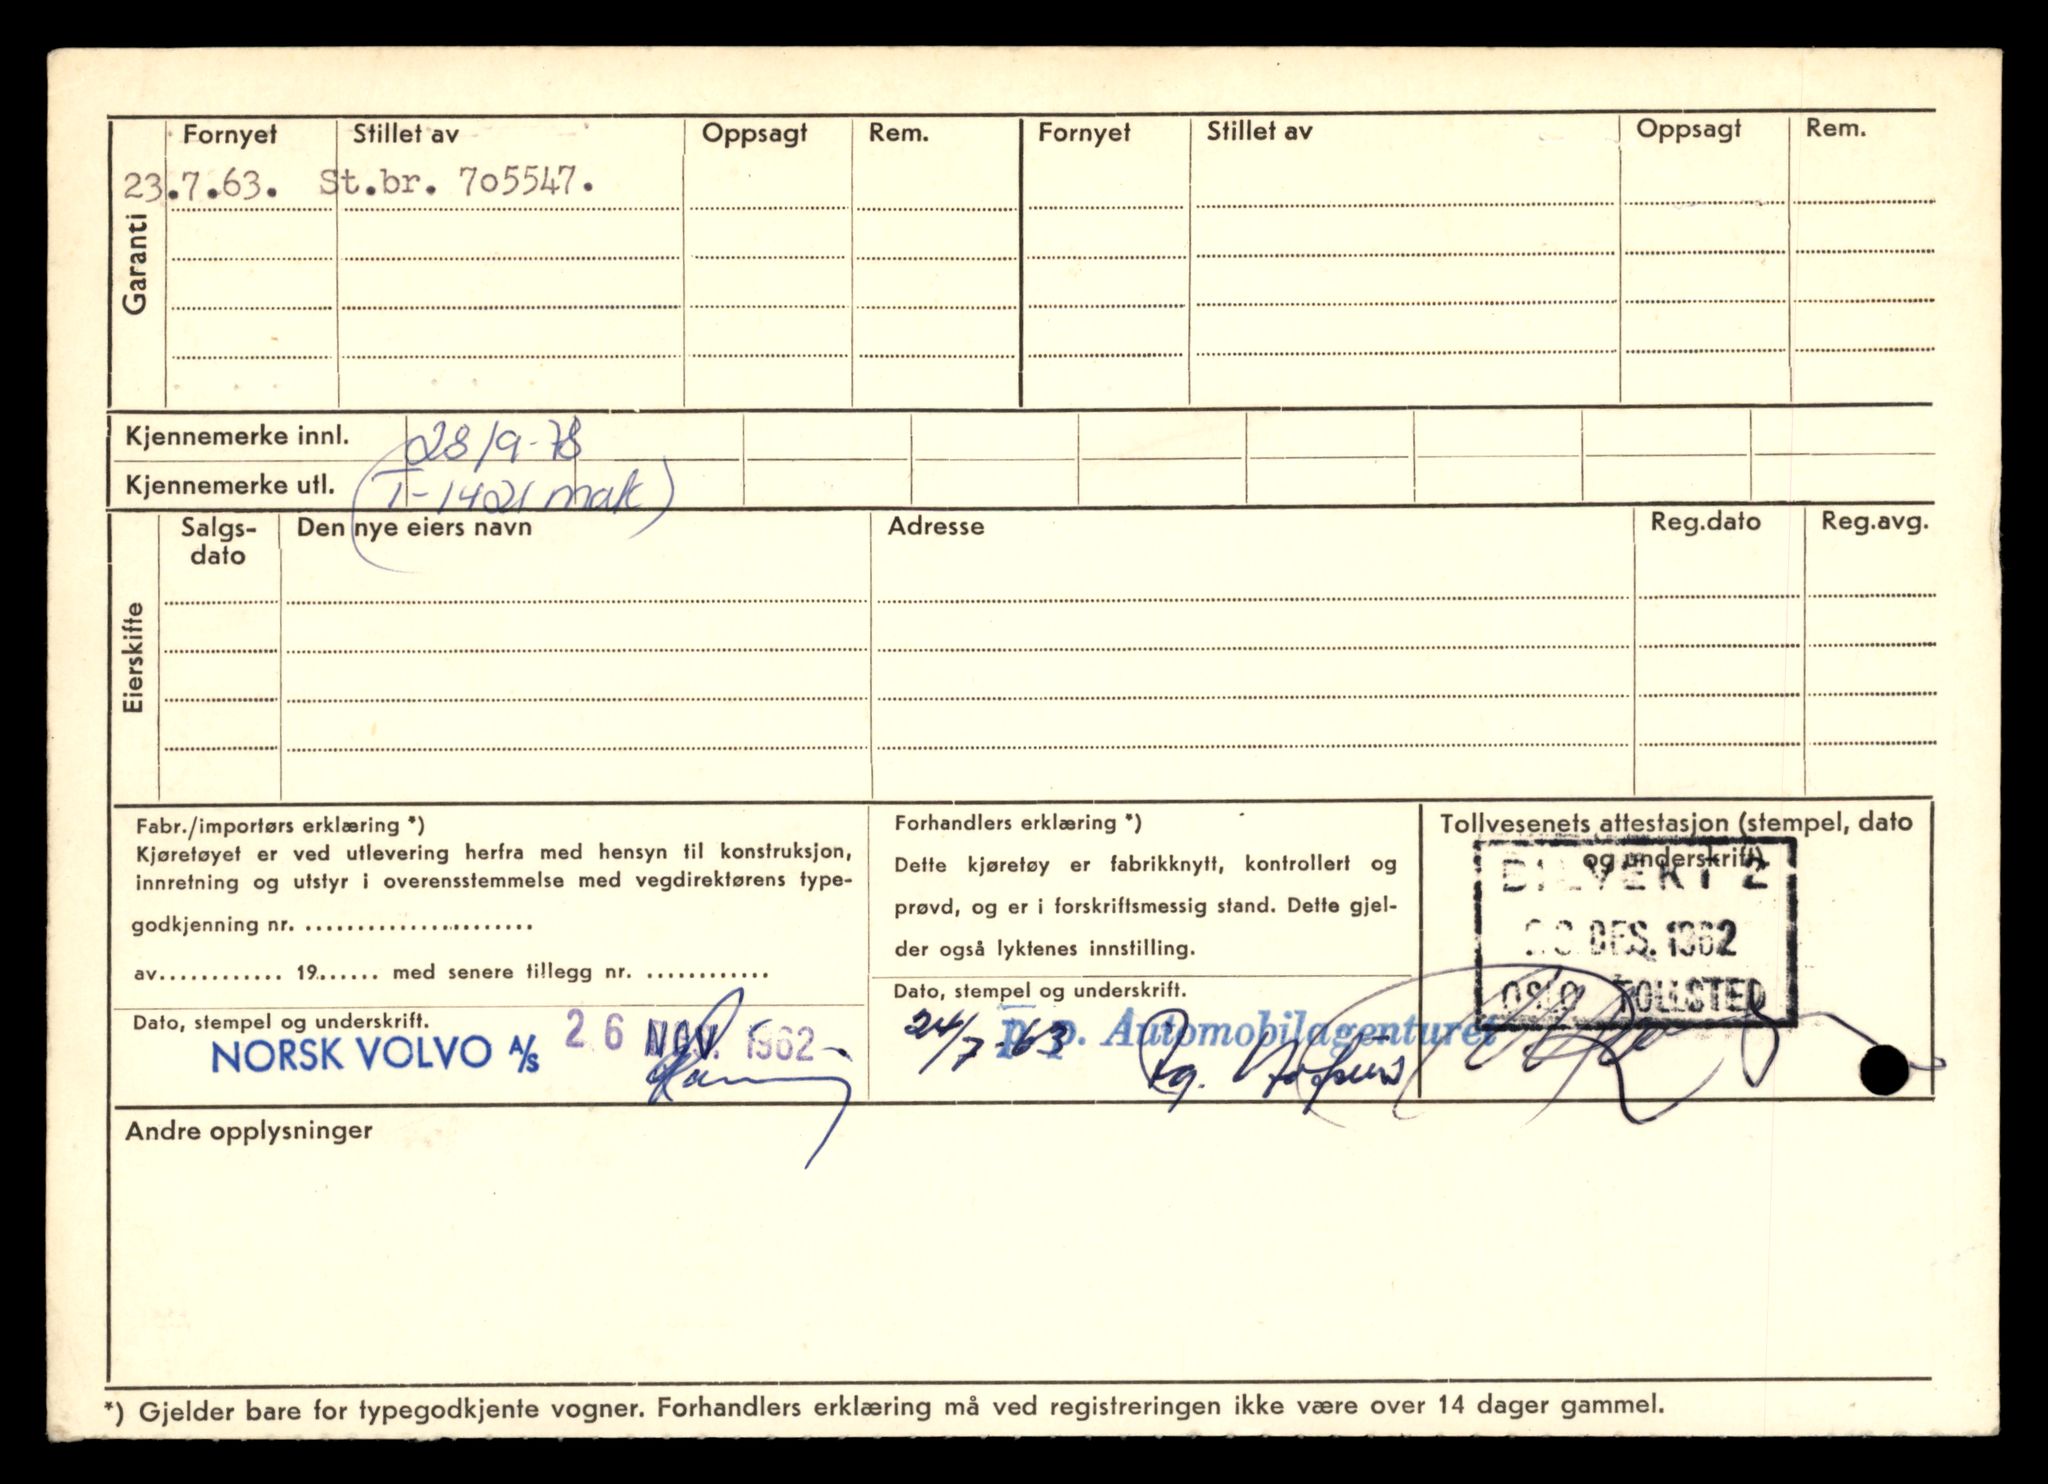 Fornyet Stillet av Oppsagt Rem. Fornyet Stillet av Oppsagt Rem.
Garanti
23.7.63. St.br. 705547.
Kjennemerke innl. 28/9-78
Kjennemerke utl. (T-1421 mak)
Salgs-dato Den nye eiers navn Adresse Reg.dato Reg.avg.
Eierskifte
Fabr./importørs erklæring *)
Kjøretøyet er ved utlevering herfra med hensyn til konstruksjon,
innretning og utstyr i overensstemmelse med vegdirektørens type-
godkjenning nr. ......................
av............ 19...... med senere tillegg nr. ............
Dato, stempel og underskrift.
NORSK VOLVO A/S 26 NOV. 1962
Forhandlers erklæring *)
Dette kjøretøy er fabrikknytt, kontrollert og
prøvd, og er i forskriftsmessig stand. Dette gjel-
der også lyktenes innstilling.
Dato, stempel og underskrift.
24/7-63 p. p. Automobilagenturet
Tollvesenets attestasjon (stempel, dato
og underskrift).
BILVEKT 2
DES. 1962
OSLO TOLLSTED
Andre opplysninger
*) Gjelder bare for typegodkjente vogner. Forhandlers erklæring må ved registreringen ikke være over 14 dager gammel.